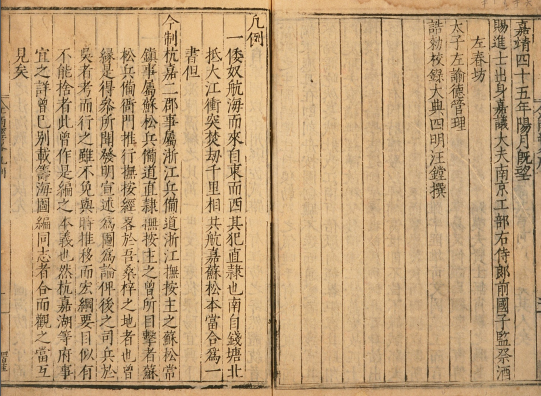 嘉靖四十五年陽月既望
賜進士出身嘉議大夫南京工部右侍郎前國子監祭酒
左春坊
太子左諭德管理
誥勑校錄大典四明汪鏜撰
凡例
一倭奴航海而來自東而西其犯直隸也南自錢塘北
抵大江衝突焚劫千里相共杭嘉蘇松本當合為一
書但
今制杭嘉二郡事屬浙江兵備道浙江撫按主之蘇松常
鎮事屬蘇松兵備道直隸撫按主之曾所目擊者蘇
松兵備衙門推行撫按經畧於吾桑梓之地者也曾
緣是得叅所聞發明宣述為圖為論俾後之司兵於
吳者考而行之雖不免與時推移而宏綱要目似有
不能捨者此曾作是編之本義也然杭嘉湖等府事
宜之詳曾已別載籌海圖編同志者合而觀之當互
見矣